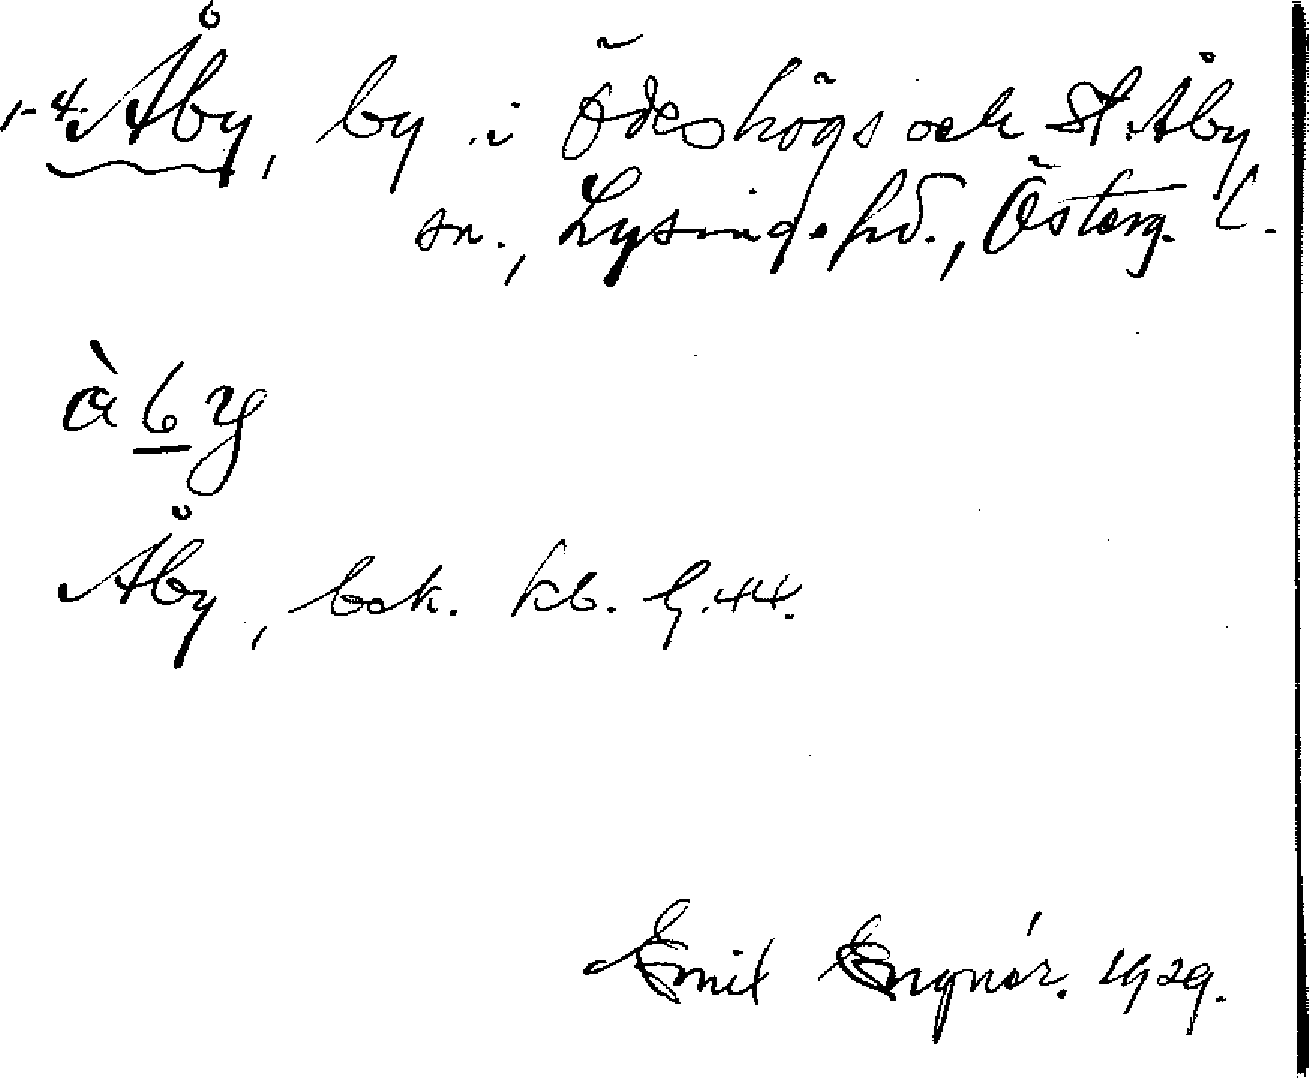 1-4. Åby, by i Ödeshögs och St. Åby
sn., Lysings hd., Österg. l.
å̀by
Åby, bek. kb. G.44.
Emil Engnér. 1929.